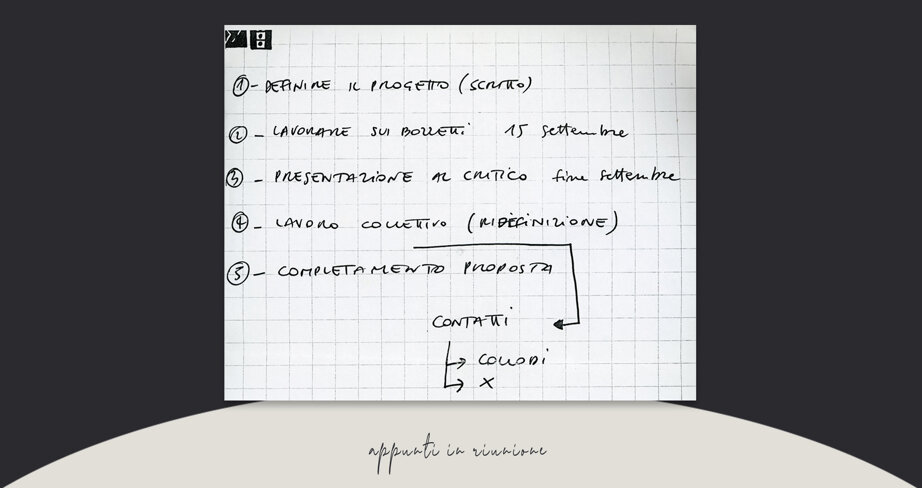 ① - DEFINIRE IL PROGETTO (SCRITTO)
② - LAVORARE SUI BOZZETTI 15 settembre
③ - PRESENTAZIONE AL CRITICO fine settembre
④ - LAVORO COLLETTIVO (RIDEFINIZIONE)
⑤ - COMPLETAMENTO PROPOSTA
CONTATTI
→ COLLODI
→ X
appunti in riunione